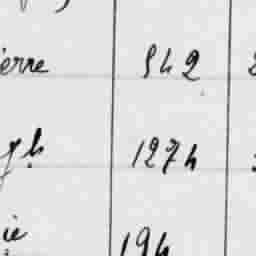 ierre 542
gh 1274
ie 194